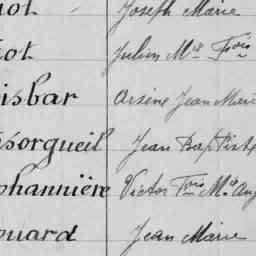 not Joseph Marie
iot Julien Mie Frois
isbar Arsène Jean Marie
sorgueil Jean Baptiste
phannière Victor Frois Mie Ang
ouard Jean Marie